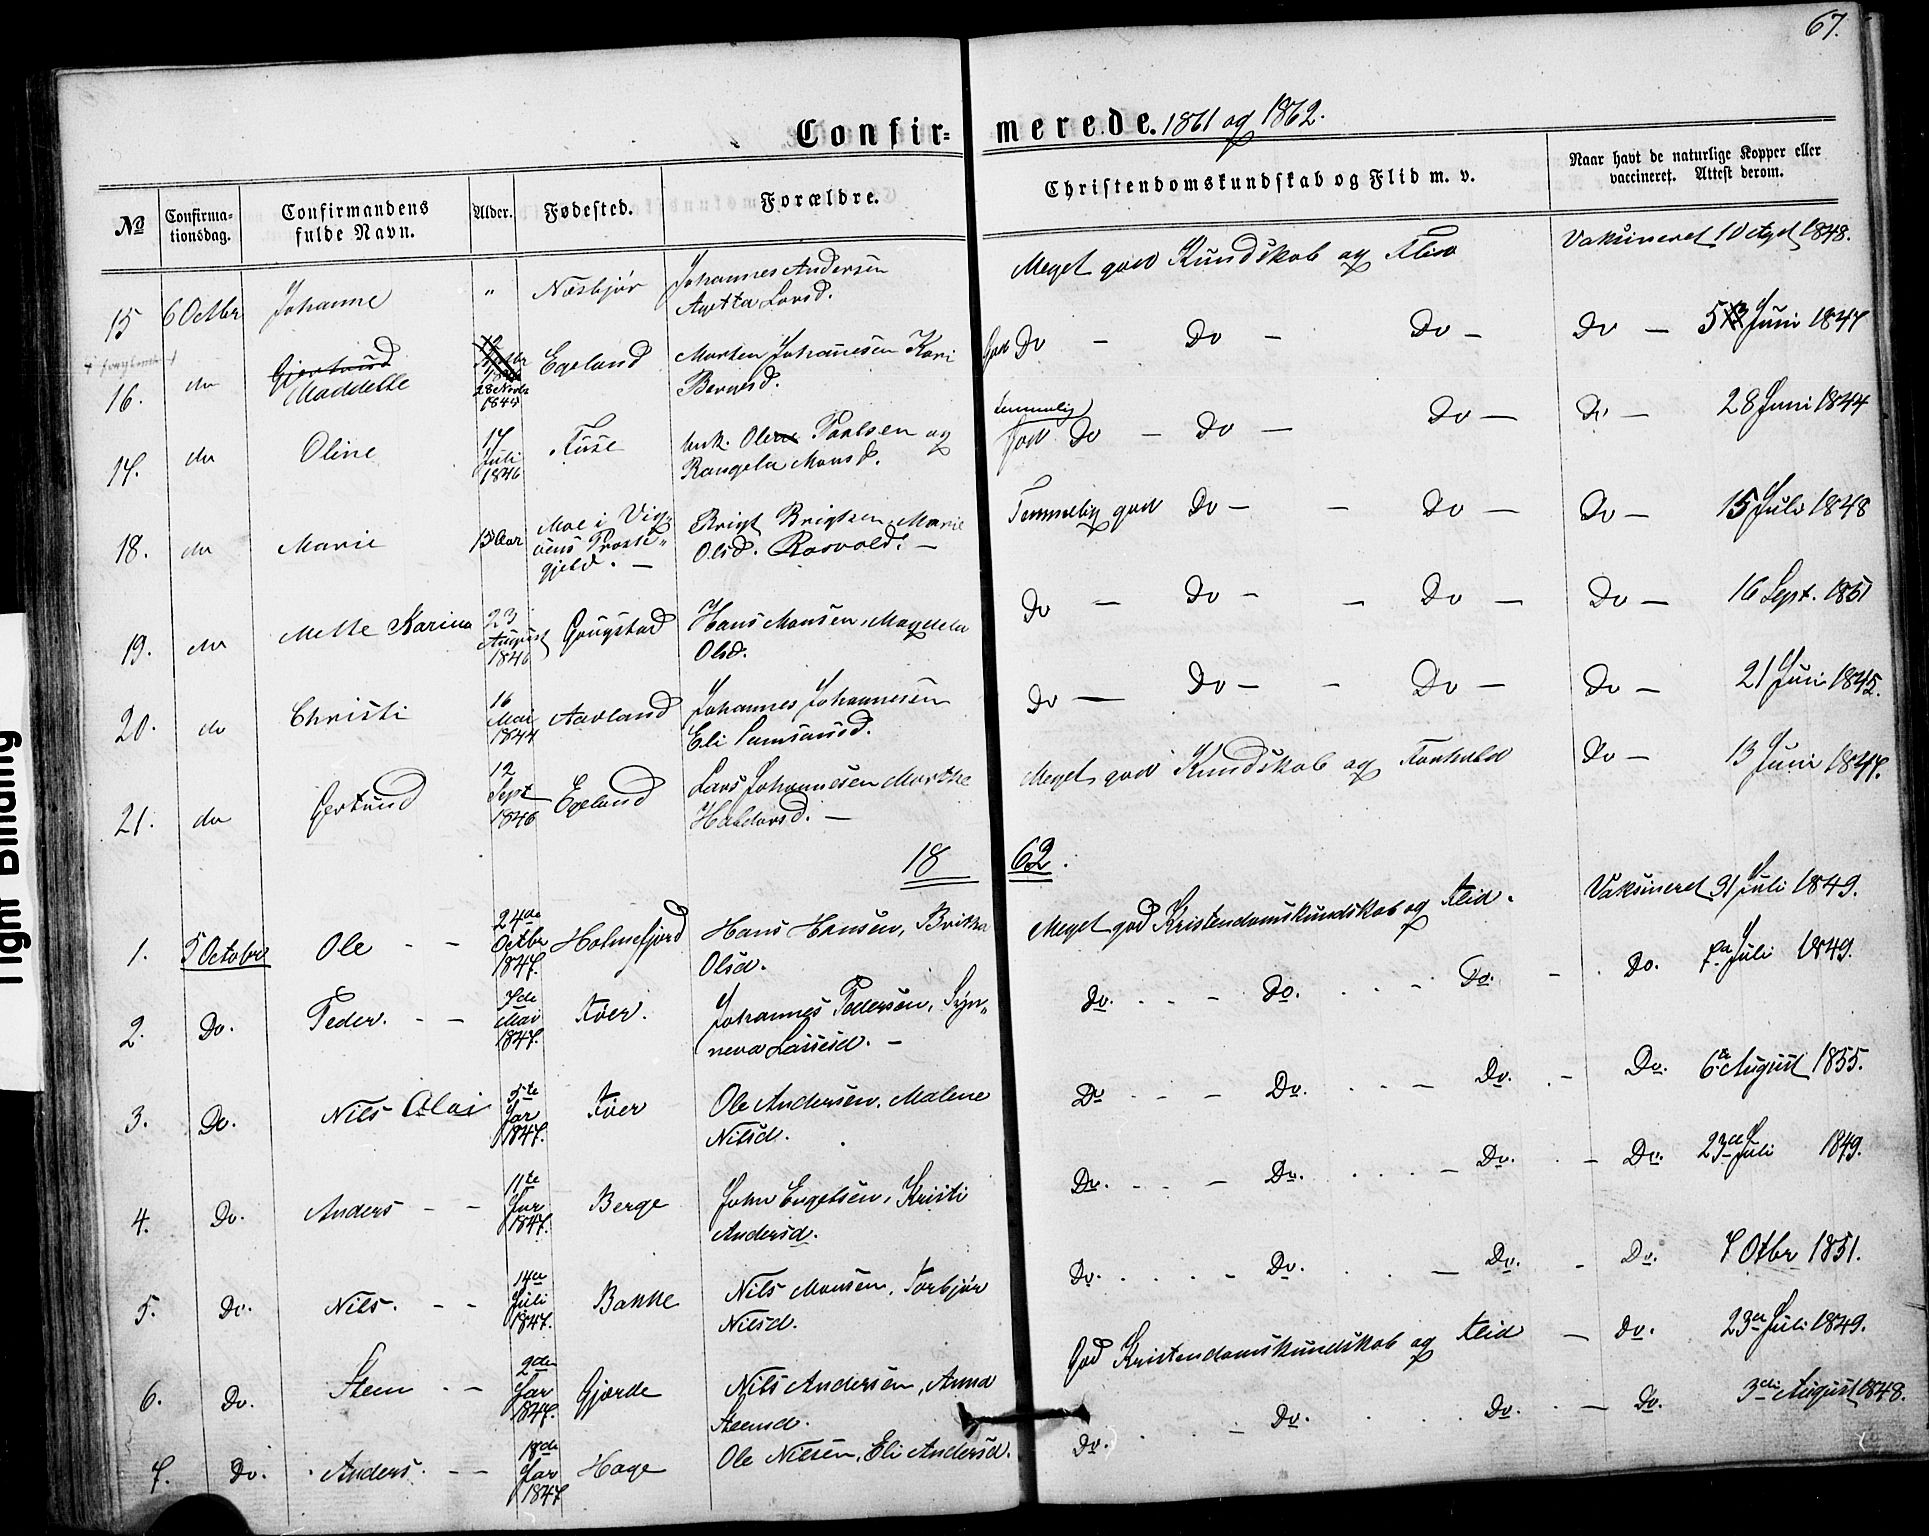 67.
Confirmerede. 1861 og 1862.
No Confirmationsdag. Confirmandens fulde Navn. Alder. Fødested. Forældre. Christendomskundskab og Flid m. v. Naar havt de naturlige Kopper eller vaccineret. Attest derom.
15 6 Octbr Johanne " Næsbjør Johannes Andersen Agetta Larsd. Meget god Kundskab og Flid Vaksineret 10 Agst 1848.
16. do Gjertrud Maddelle 28 Novbr 1845 Egeland Morten Johanesen Kari Bernsd. God Do - Do - Do - Do - 5 Juni 1847
17. do Oline 17 Juli 1846 Fuse Ole Paalsen og Rangela Monsd. temmelig God Do - Do - Do - Do - 28 Juni 1844
18. do Marie 15 Aar Moe i Vig„ ens Præste„ gjeld. - Brigt Brigtsen, Marie Olsd. Rosvold. - Temmelig god Do - - Do - Do - 15 Juli 1848
19. do Mette Karina 23 August 1846 Gougstad Hans Monsen, Magdela Olsd. Do - Do - - Do - Do - 16 Sept. 1851
20. do Christi 16 Mai 1844 Aarland Johannes Johannesen Eli Samsonsd. Do - Do - - Do - Do - 21 Juni 1845.
21. do Gertrud 12 Sept 1846 Egeland Lars Johannesen Marthe Haldorsd. - Meget god Kundskab og Forhold Do - 13 Juni 1847.
1862.
1. 5 October Ole - - 24de Octbr 1847. Holmefjord Hans Hansen, Britha Olsd. Meget god Kristendomskundskab og Flid. Vaksineret 31 Juli 1849.
2. Do. Peder. - - 7de Mai 1847. Tver. Johannes Pedersen, Syn„ neva Lassesd. - Do. - Do. - Do. - Do. Juli 1849.
3. Do. Nils Olai 5te Jar 1847. Tver Ole Andersen, Malene Nilsd. Do - Do. - Do. - Do. 6te August 1855.
4. Do. Anders - - 11te Jar 1847. Berge John Engelsen, Kristi Andersd. Do. - Do. - Do. - Do. 23de Juli 1849.
5. Do. Nils. - - 14de Juli 1847. Bakke Nils Monsen, Torbjør Nilsd. Do. - Do. - Do. - Do. 7 Otbr 1851.
6. Do. Steen - - 2den Jar 1847. Gjerde Nils Andersen, Anna Steensd. God Kristendomskundskab og Flid - Do. 23de Juli 1849.
7. Do. Anders. - - 18de Jar 1847 Hage Ole Nilsen, Eli Andersd. Do. - Do. Do. - Do. 3die August 1848.
Tight Binding